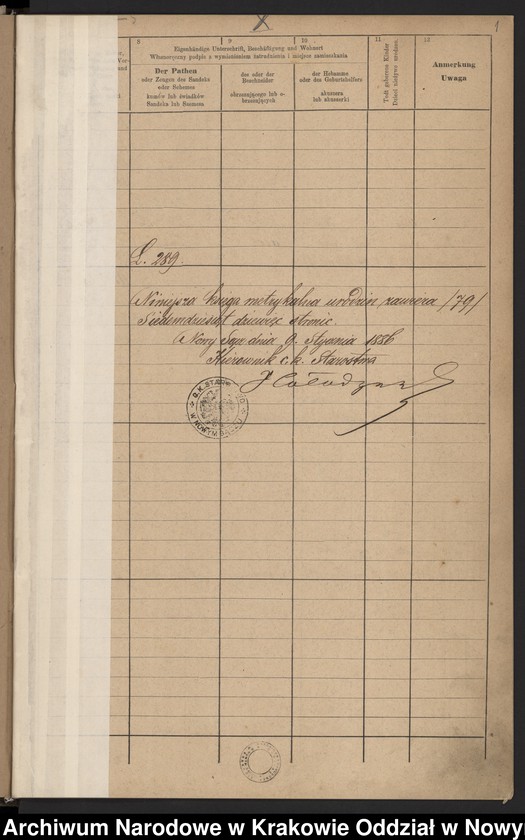 1
8
9
10
11
12
Eigenhändige Unterschrift, Beschäftigung und Wohnort
Własnoręczny podpis z wymienieniem zatrudnienia i miejsca zamieszkania
Der Pathen
oder Zeugen des Sandeks
oder Schemes
kumów lub świadków
Sandeka lub Szemesa
des oder der
Beschneider
obrzezującego lub o-
brzezujących
der Hebamme
oder des Geburtshelfers
akuszera
lub akuszerki
Todt geborene Kinder
Dzieci nieżywo urodzone
Anmerkung
Uwaga
L. 289.
Niniejsza księga metrykalna urodzin zawiera /79/
Siedemdziesiąt dziewięć stronic.
Nowy Sącz dnia 9. Stycznia 1886
Kierownik c.k. Starostwa
W NOWYM SĄCZU
Archiwum Narodowe w Krakowie Oddział w Nowy